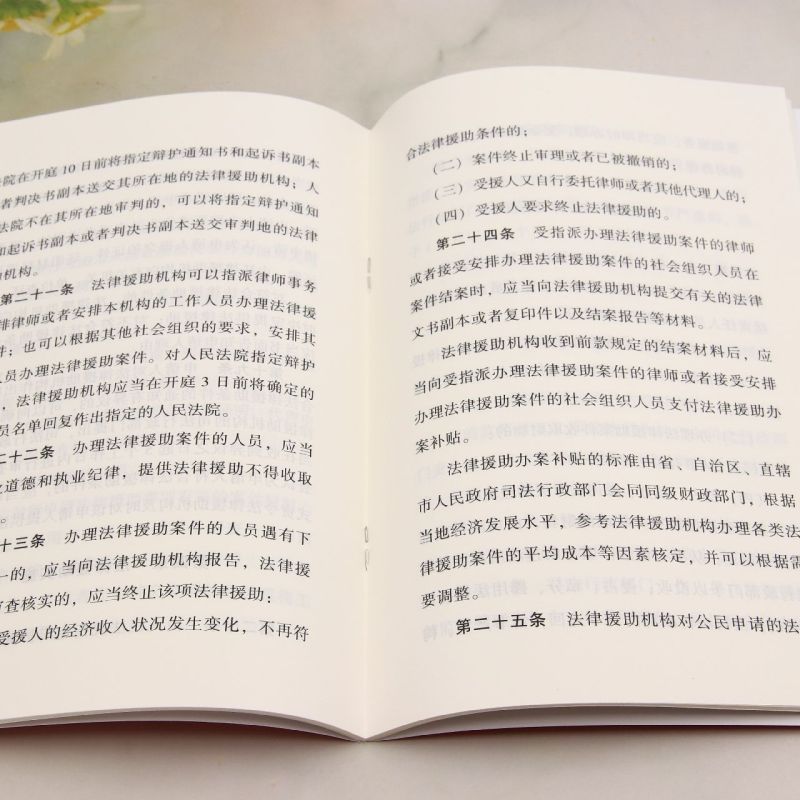 院在开庭 10 日前将指定辩护通知书和起诉书副本
者判决书副本送交其所在地的法律援助机构；人
法院不在其所在地审判的，可以将指定辩护通知
和起诉书副本或者判决书副本送交审判地的法律
机构。
第二十一条 法律援助机构可以指派律师事务
排律师或者安排本机构的工作人员办理法律援
件；也可以根据其他社会组织的要求，安排其
人员办理法律援助案件。对人民法院指定辩护
，法律援助机构应当在开庭 3 日前将确定的
员名单回复作出指定的人民法院。
二十二条 办理法律援助案件的人员，应当
业道德和执业纪律，提供法律援助不得收取
。
十三条 办理法律援助案件的人员遇有下
一的，应当向法律援助机构报告，法律援
审查核实的，应当终止该项法律援助：
受援人的经济收入状况发生变化，不再符
合法律援助条件的；
（二）案件终止审理或者已被撤销的；
（三）受援人又自行委托律师或者其他代理人的；
（四）受援人要求终止法律援助的。
第二十四条 受指派办理法律援助案件的律师
或者接受安排办理法律援助案件的社会组织人员在
案件结案时，应当向法律援助机构提交有关的法律
文书副本或者复印件以及结案报告等材料。
法律援助机构收到前款规定的结案材料后，应
当向受指派办理法律援助案件的律师或者接受安排
办理法律援助案件的社会组织人员支付法律援助办
案补贴。
法律援助办案补贴的标准由省、自治区、直辖
市人民政府司法行政部门会同同级财政部门，根据
当地经济发展水平，参考法律援助机构办理各类法
律援助案件的平均成本等因素核定，并可以根据需
要调整。
第二十五条 法律援助机构对公民申请的法